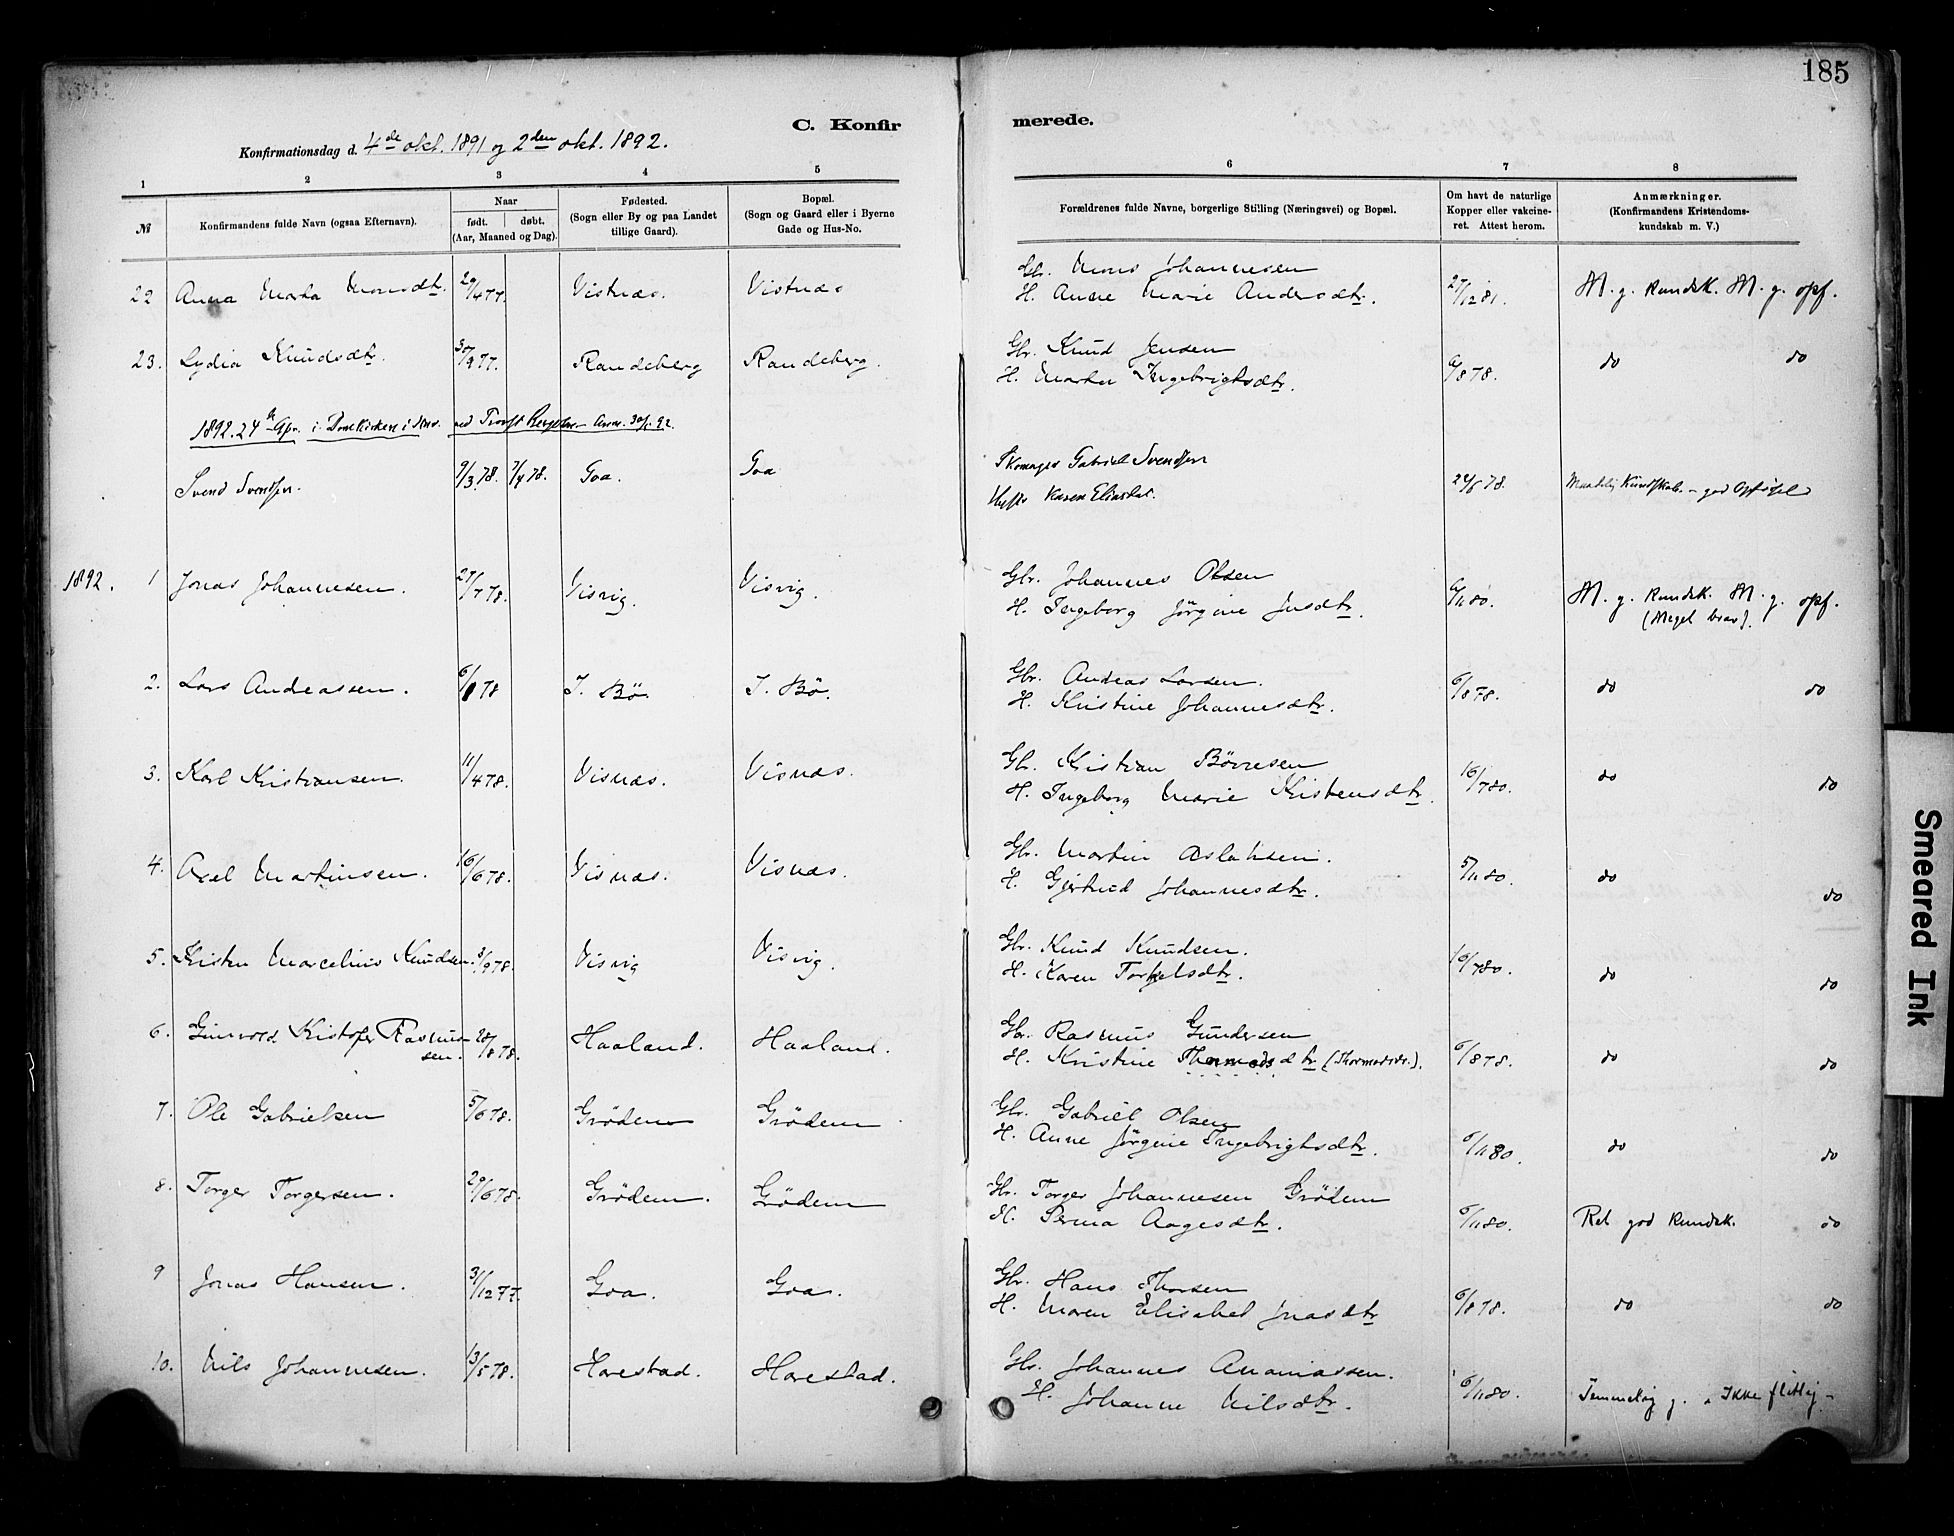 185
C. Konfirmerede.
Konfirmationsdag d. 4de okt. 1891 og 2den okt. 1892.
1 2 3 4 5 6 7 8
№ Konfirmandens fulde Navn (ogsaa Efternavn). Naar født. døbt. (Aar, Maaned og Dag). Fødested. (Sogn eller By og paa Landet tillige Gaard). Bopæl. (Sogn og Gaard eller i Byerne Gade og Hus-No. Forældrenes fulde Navne, borgerlige Stilling (Næringsvei) og Bopæl. Om havt de naturlige Kopper eller vakcineret. Attest herom. Anmærkninger. (Konfirmandens Kristendomskundskab m. V.)
22 Anna Marta Monsdtr. 29/4 77. Vistnæs. Vistnæs Gbr. Mons Johannesen 27/12 81. M. g. kundsk. M. g. opf.
H. Anne Marie Andersdtr.
23. Lydia Knudsdtr. 30/9 77. Randeberg Randeberg. Gbr. Knud Jensen 6/8 78. do do
H. Marta Ingebrigtsdtr.
1892. 24de Apr. i Domkirken i Stav. ved Provst
Svend Svendsen. 9/3 78. 7/4 78. Goa. Goa Skomager Gabriel Svendsen 24/6 78. Maadelig Kundskab. - god Opførsel
Karen
1892. 1 Jonas Johannesen. 27/7 78. Visvig. Visvig. Gbr. Johannes Olsen 6/11 80. M. g. kundsk. M. g. opf.
H. Ingeborg Jörgine Jnsdtr. (Meget brav).
2. Lars Andreassen. 6/1 78 I. Bö. I. Bö. Gbr. Andreas Larsen. 6/8 78. do do
H. Kristine Johannesdtr.
3. Karl Kristiansen. 11/4 78. Visnæs. Visnæs. Gbr. Kristian Börresen 16/7 80. do do
H. Ingeborg Marie Kristensdtr.
4. Axel Martinsen. 16/6 78. Visnæs. Visnæs. Gbr. Martin Aslaksen. 5/11 80. do do
H. Gjertrud Johannesdtr.
5. Kristen Marcelius Knudsen. 3/9 78. Visvig Visvig. Gbr. Knud Knudsen. 16/7 80. do do
H. Karen Torkelsdtr.
6. Gunvald Kristofer Rasmussen. 28/8 78. Haaland. Haaland. Gbr. Rasmus Gundersen 6/8 78. do do
H. Kristine Thormodsdtr (Thormodsdr.).
7. Ole Gabrielsen 5/6 78. Grödem Grödem Gbr. Gabriel Olsen 6/11 80. do do
H. Anne Jörgine Ingebrigtsdtr.
8. Torger Torgersen. 29/6 78. Grödem. Grödem Gbr. Torger Johannesen Grödem 6/11 80. Ret god kundsk. do
H. Serina Aagesdtr.
9 Jonas Hansen. 3/12 77. Goa. Goa. Gbr. Hans Thorsen 6/8 78. do do
H. Maren Elisabet Jnasdtr
10. Nils Johannesen. 13/5 78. Harestad. Harestad. Gbr. Johannes Ananiassen. 6/11 80. Temmelig g. Ikke flittig
H. Johanne Nilsdtr.
Smeared Ink